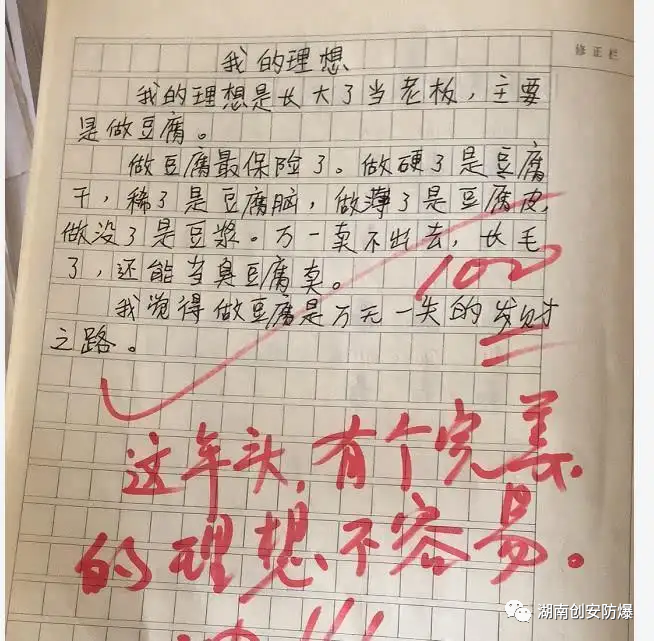 修正栏
我的理想
我的理想是长大了当老板，主要
是做豆腐。
做豆腐最保险了。做硬了是豆腐
干，稀了是豆腐脑，做薄了是豆腐皮，
做没了是豆浆。万一卖不出去，长毛
了，还能当臭豆腐卖。
100
我觉得做豆腐是万无一失的发财
之路。
这年头，有个完美
的理想不容易。
湖南创安防爆